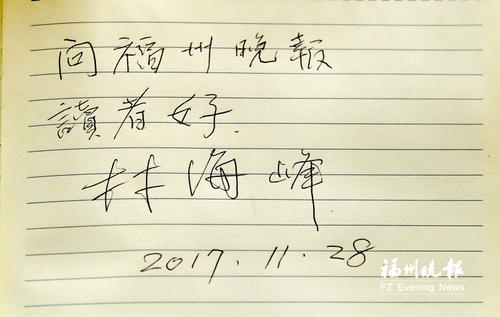 向福州晚報
讀者好.
林海峰
2017.11.28
福州晚報
FZ Evening News